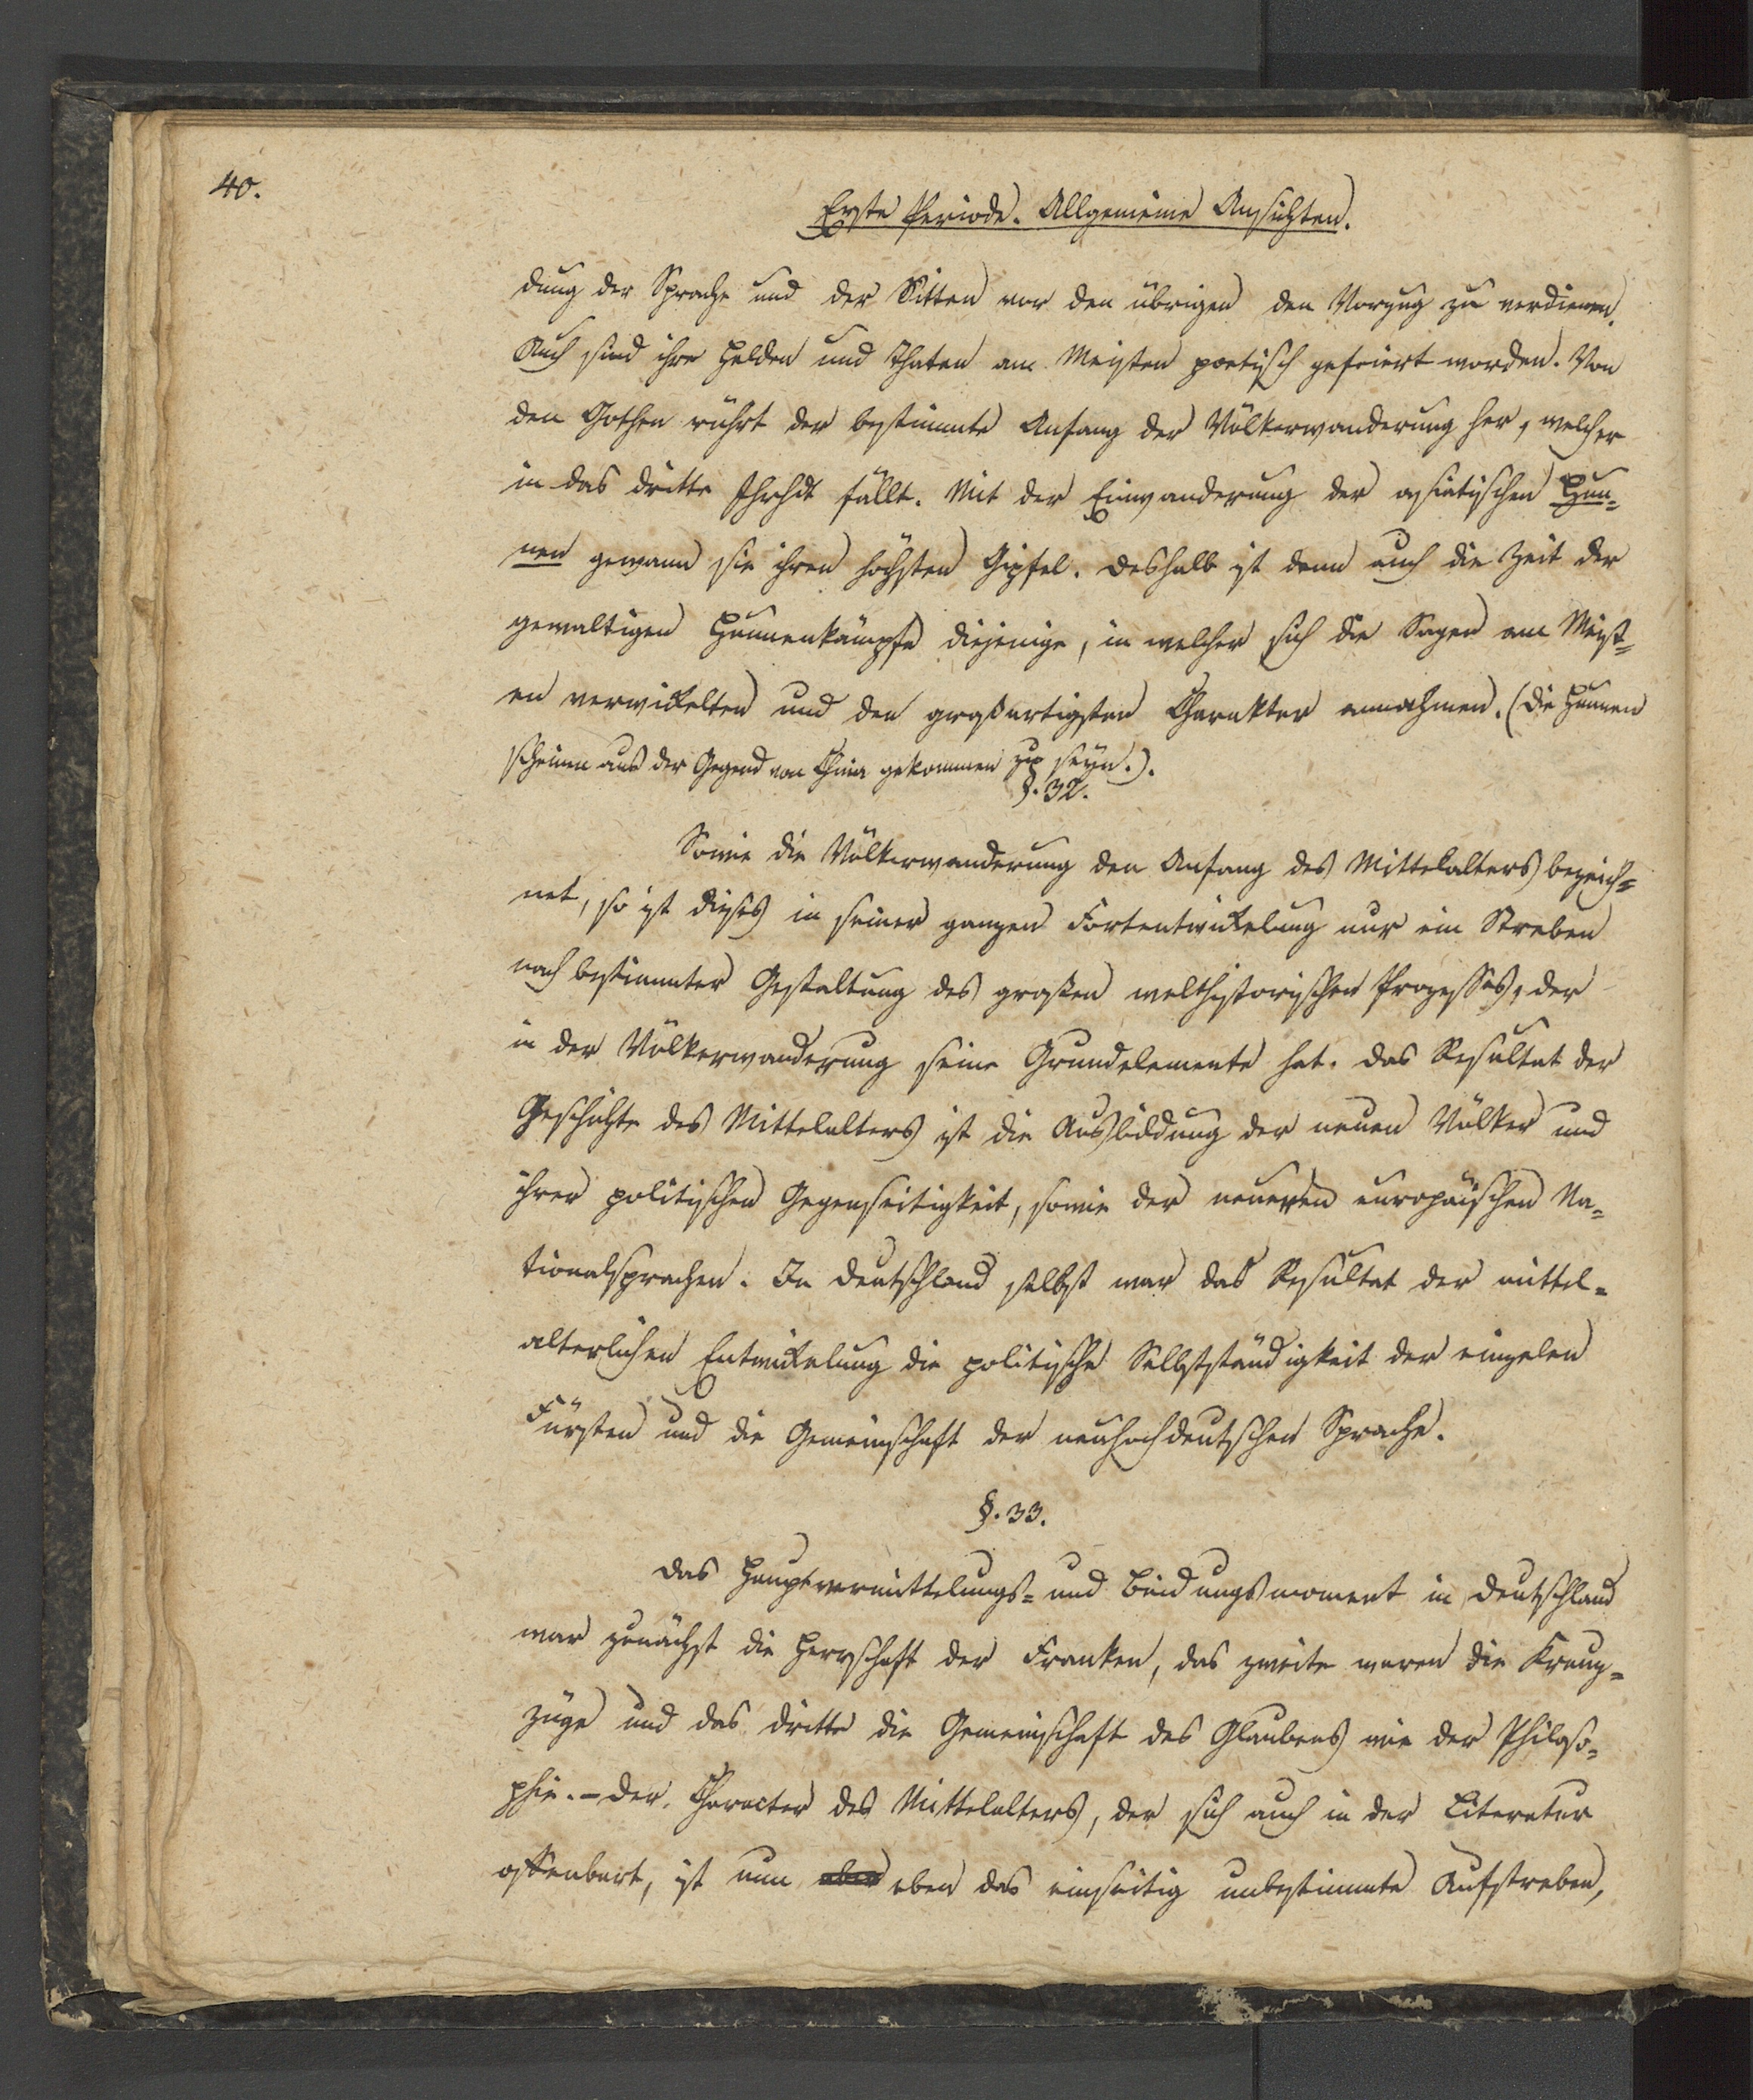 40.
Erste Periode. Allgemeine Ansichten.
dung der Sprache und der Sitten vor den übrigen den Vorzug zu verdienen.
Auch sind ihre Helden und Thaten am Meisten poetisch gefeiert worden. Von
den Gothen rührt der bestimmte Anfang der Völkerwanderung her, welcher
in das dritte Jhrhdt fällt. Mit der Einwanderung der asiatischen Hun-
nen gewann sie ihren höchsten Gipfel. Deshalb ist denn auch die Zeit der
gewaltigen Hunnenkämpfe diejenige, in welcher sich die Sagen am Meist-
en verwickelten und den großartigsten Charakter annahmen. (Die Hunnen
scheinen aus der Gegend von China gekommen zu seyn.).
§. 32.
Sowie die Völkerwanderung den Anfang des Mittelalters bezeich-
net, so ist dieses in seiner ganzen Fortentwickelung nur ein Streben
nach bestimmter Gestaltung des großen welthistorischen Prozesses, der
in der Völkerwanderung seine Grundelemente hat. Das Resultat der
Geschichte des Mittelalters ist die Ausbildung der neuen Völker und
ihrer politischen Gegenseitigkeit, sowie der neueren europäischen Na-
tionalsprachen. In Deutschland selbst war das Resultat der mittel-
alterlichen Entwickelung die politische Selbstständigkeit der einzelen
Fürsten und die Gemeinschaft der neuhochdeutschen Sprache.
§. 33.
Das Hauptvermittelungs- und Bindungsmoment in Deutschland
war zunächst die Herrschaft der Franken, das zweite waren die Kreuz-
züge und das dritte die Gemeinschaft des Glaubens wie der Philoso-
phie. - Der Character des Mittelalters, der sich auch in der Literatur
offenbart, ist nun aber eben das einseitig unbestimmte Aufstreben,